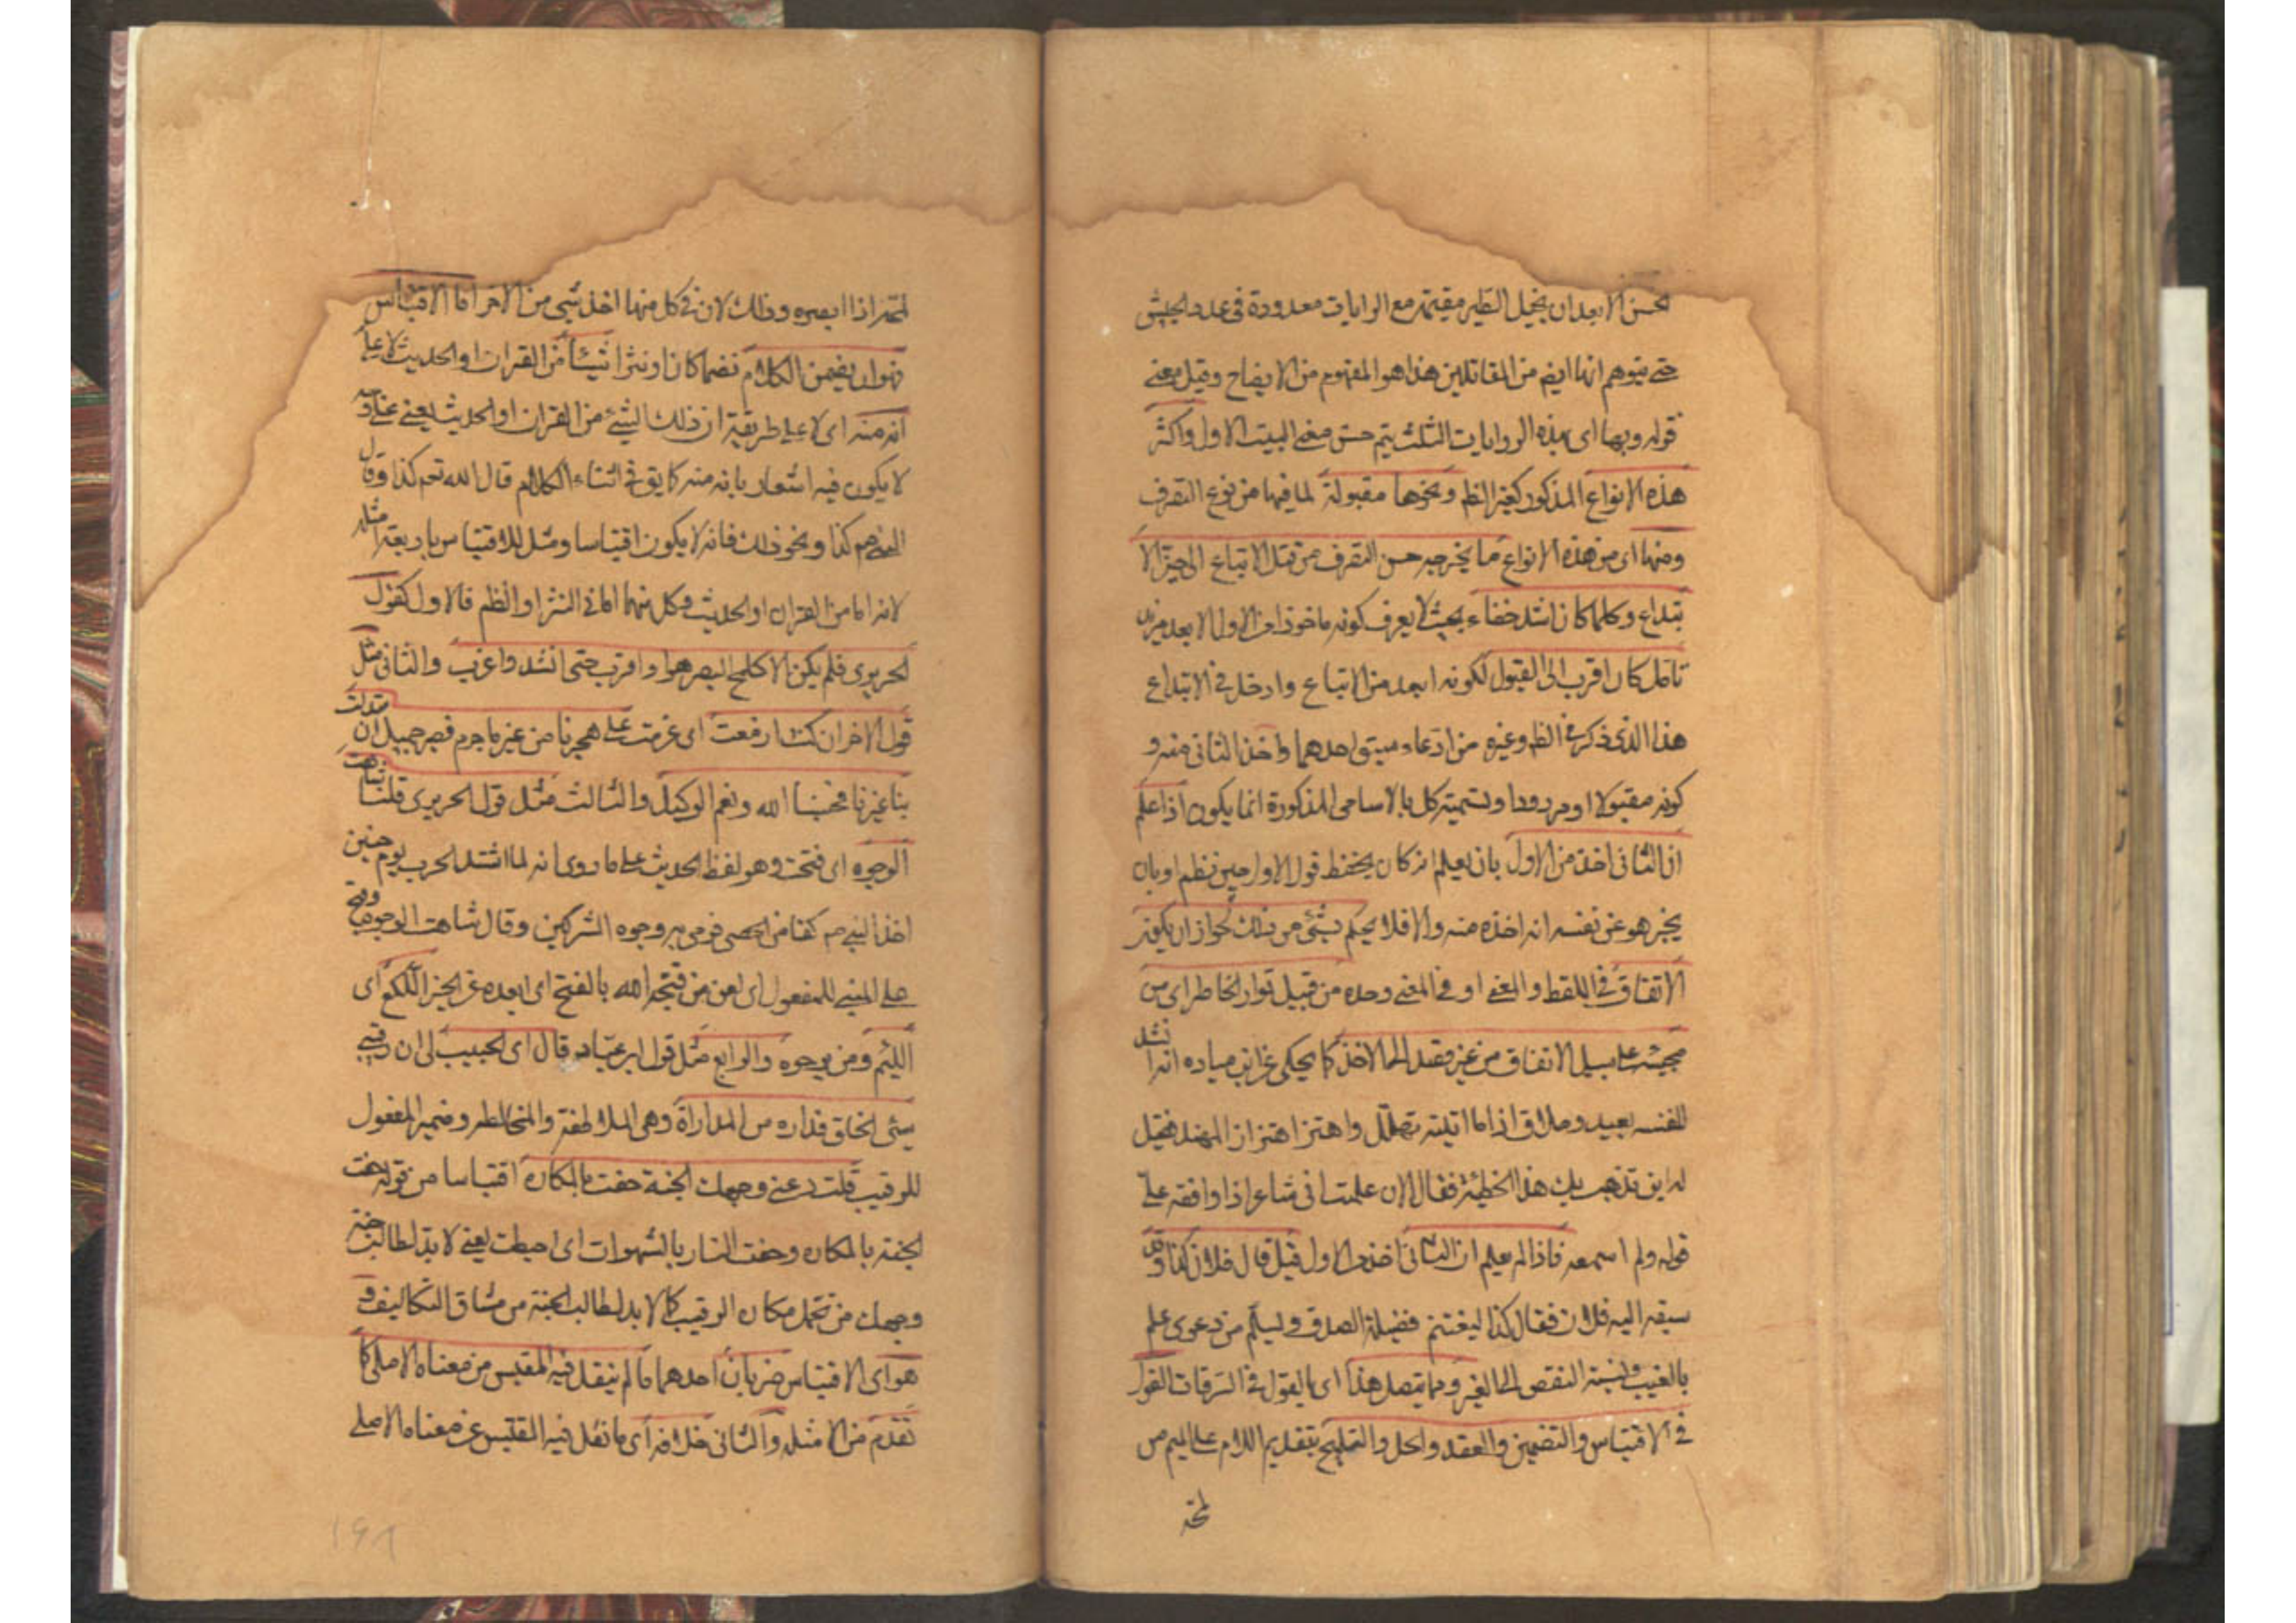 لحسن الا بعد ان يخيل الطير مقيمة مع الرايات معدودة فى عدد الجيش
حتى يتوهم انها ايض من المقاتلين هذا هو المفهوم من الايضاح وقيل معنى
قوله وبها اى بهذه الروايات الثلث يتم حسن معنى البيت الاول واكثر
هذه الانواع المذكور كغير الظم ونحوها مقبولة لما فيها من نوع التصرف
ومنها اى من هذه الانواع ما يخرجه حسن التصرف من قبيل الاتباع الى حيز الا
بتداع وكلما كان اشد خفاء بحيث لا يعرف كونه ماخوذا من الاول الا بعد مزيد
تامل كان اقرب الى القبول لكونه ابعد من الاتباع وادخل فى الابتداع
هذا الذى ذكر فى الظم وغيره من ادعاء سبق احدهما واخذ الثانى منه و
كونه مقبولا او مردودا وتسمية كل بالاسامى المذكورة انما يكون اذا علم
ان الثانى اخذ من الاول بان يعلم انه كان يحفظ قول الاول حين نظم او بان
يخبر هو عن نفسه انه اخذه منه والا فلا يحكم بشئ من ذلك لجواز ان يكون
الاتفاق فى اللفظ والمعنى او فى المعنى وحده من قبيل توارد الخاطر اى من
مجيئه على سبيل الاتفاق من غير قصد الى الاخذ كما يحكى عن ابن مياده انه انشد
لنفسه بعيد ومتلاف اذا ما اتيته تهلل واهتز اهتزاز المهند فقيل
له اين تذهب بك هذا الحطيئة فقال الان علمت انى شاعر اذا وافقه على
قوله ولم اسمعه فاذا لم يعلم ان الثانى اخذ من الاول قيل قال فلان كذا وقد
سبقه اليه فلان فقال كذا ليغتنم فضيلة الصدق ويسلم من دعوى علم
بالغيب ونسبة النقص الى الغير ومما يتصل هذا اى بالقول فى السرقات القول
فى الاقتباس والتضمين والعقد والحل والتمليح بتقديم اللام على الميم من
لمحه
لمحه اذا ابصره وذلك لان فى كل منها اخذ شئ من الاخر اما الاقتباس
فهو ان يضمن الكلام نظما كان او نثرا شيئا من القران او الحديث لا على
انه منه اى لا على طريقة ان ذلك الشئ من القران او الحديث يعنى على وجه
لا يكون فيه اشعار بانه منه كما يق فى اثناء الكلام قال الله تعم كذا وقال
النبى صم كذا ونحو ذلك فانه لا يكون اقتباسا ومثل للاقتباس باربعة امثله
لانه اما من القران او الحديث وكل منهما اما فى النثر او النظم فالاول كقول
الحريرى فلم يكن الا كلمح البصر هوا واقرب حتى انشد واغرب والثانى مثل
قول الاخر ان كنت ازمعت اى عزمت على هجرنا من غير ما جرم فصبر جميل ان تبدلت
بنا غيرنا فحسبنا الله ونعم الوكيل والثالث مثل قول الحريرى قلنا شاهت
الوجوه اى قبحت وهو لفظ الحديث على ما روى انه لما اشتد الحرب يوم حنين
اخذ النبى صم كفا من الحصى فرمى به وجوه المشركين وقال شاهت الوجوه وقبح
على المبنى للمفعول اى لعن من قبحه الله بالفتح اى ابعده عن الخير اللكع اى
اللئيم ومن يرجوه والرابع مثل قول ابن عباد قال اى الحبيب لى ان رقيبى
سيئ الخلق فداره من المداراة وهى الملاطفة والمخالطه وضمير المفعول
للرقيب قلت دعنى وجهك الجنة حفت بالمكاره اقتباسا من قوله حفت
الجنة بالمكاره وحفت النار بالشهوات اى احيطت يعنى لا بد لطالب جنة
وجهك من تحمل مكاره الرقيب كما لا بد لطالب الجنة من مشاق التكاليف و
هو اى الاقتباس ضربان احدهما ما لم ينقل فيه المقتبس من معناه الاصلى كما
تقدم من الامثله والثانى خلافه اى ما نقل فيه المقتبس عن معناه الاصلى